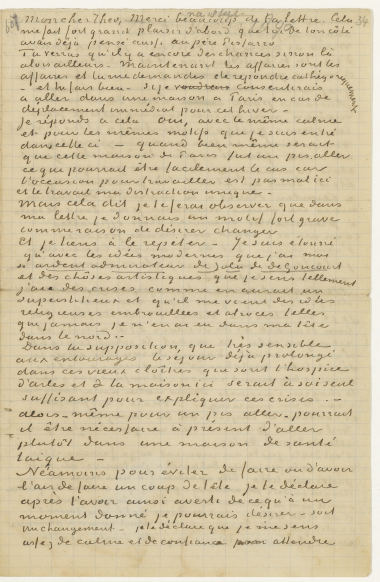 Mon cher Theo, Merci beaucoup de ta lettre. Cela
me fait fort grand plaisir d'abord que toi de ton côté
avais déjà pensé aussi au père Pissarro
Tu verras qu'il y a encore des chances sinon là
alors ailleurs. Maintenant les affaires sont les
affaires et tu me demandes de repondre cathégoriquement
- et tu fais bien - si je voudrais consentirais
a aller dans une maison a Paris en cas de
deplacement immédiat pour cet hiver.
Je réponds à cela Oui, avec le même calme
et pour les mêmes motifs que je suis entré
dans celle ci - quand bien même serait
que cette maison de Paris fut un pis aller
ce que pourrait être facilement le cas car
l'occasion pour travailler est pas mal ici
et le travail ma distraction unique.
Mais cela dit je te ferai observer que dans
ma lettre je donnais un motif fort grave
comme raison de désirer changer
Et je tiens à le repeter - Je suis etonné
qu'avec les idées modernes que j'ai moi
si ardent admirateur de Zola de de Goncourt
et des chôses artistiques que je sens tellement
j'aie des crises comme en aurait un
superstitieux et qu'il me vient des idées
religieuses embrouillées et atroces telles
que jamais je n'en ai eu dans ma tête
dans le nord -
Dans la supposition, que très sensible
aux entourages le séjour déjà prolongé
dans ces vieux cloîtres que sont l'hospice
d'arles et la maison ici serait à soi seul
suffisant pour expliquer ces crises . -
alors - même pour un pis aller - pourrait
il être nécessaire à présent d'aller
plutôt dans une maison de santé
laique -
Néamoins pour éviter de faire ou d'avoir
l'air de faire un coup de tête je te déclare
après t'avoir ainsi averti de ce qu'à un
moment donné je pourrais désirer - soit
un changement - je te déclare que je me sens
assez de calme et de confiance pour attendre